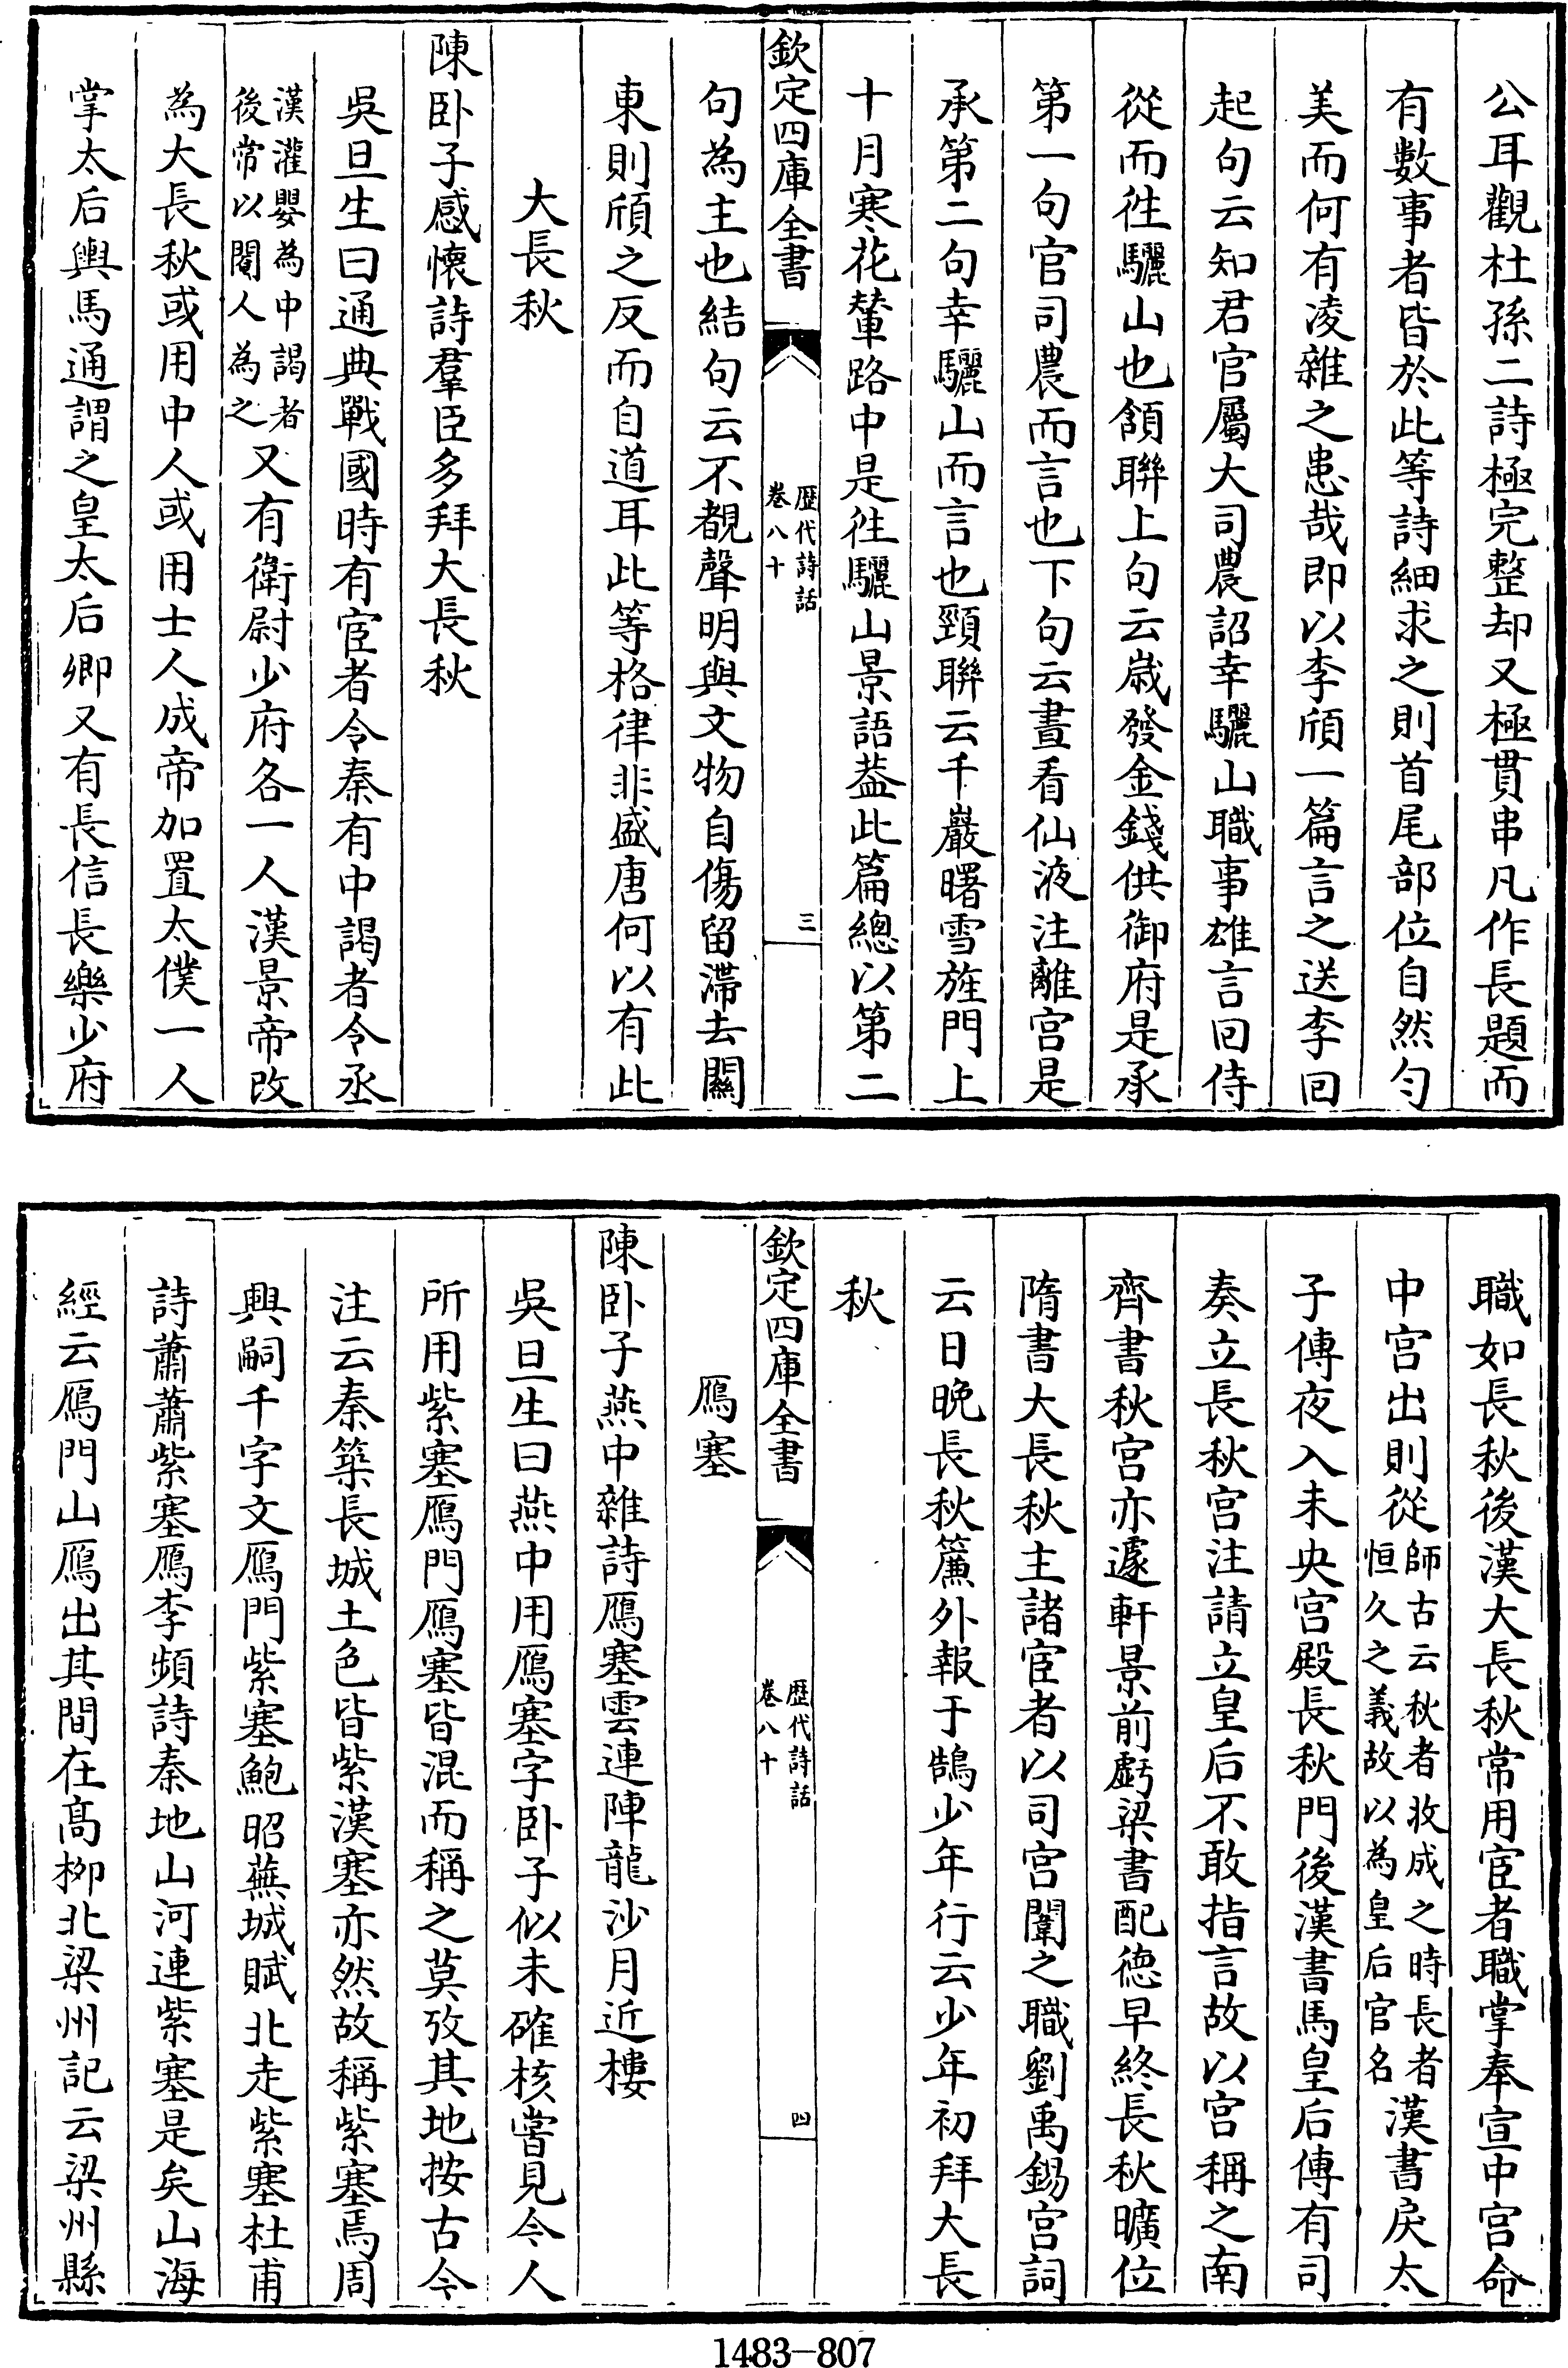 公耳觀杜孫二詩極完整却又極貫串凡作長題而
有數事者皆於此等詩細求之則首尾部位自然勻
美而何有凌雜之患哉即以李頎一篇言之送李回
起句云知君官屬大司農詔幸驪山職事雄言回侍
從而徃驪山也頷聯上句云歳發金錢供御府是承
第一句官司農而言也下句云晝看仙液注離宫是
承第二句幸驪山而言也頸聯云千巖曙雪旌門上
十月寒花輦路中是徃驪山景語葢此篇總以第二
欽定四庫全書
歴代詩話
卷八十
三
句為主也結句云不覩聲明與文物自傷留滯去關
東則頎之反而自道耳此等格律非盛唐何以有此
大長秋
陳卧子感懷詩羣臣多拜大長秋
吳旦生曰通典戰國時有宦者令秦有中謁者令丞
漢灌嬰為中謁者
後常以閹人為之
又有衛尉少府各一人漢景帝改
為大長秋或用中人或用士人成帝加置太僕一人
掌太后輿馬通謂之皇太后卿又有長信長樂少府
職如長秋後漢大長秋常用宦者職掌奉宣中宫命
中宫出則從
師古云秋者收成之時長者
恒久之義故以為皇后官名
漢書戾太
子傳夜入未央宫殿長秋門後漢書馬皇后傳有司
奏立長秋宫注請立皇后不敢指言故以宫稱之南
齊書秋宫亦遽軒景前虧梁書配徳早終長秋曠位
隋書大長秋主諸宦者以司宫闈之職劉禹錫宫詞
云日晚長秋簾外報于鵠少年行云少年初拜大長
秋
欽定四庫全書
歴代詩話
卷八十
四
鴈塞
陳卧子燕中雜詩鴈塞雲連陣龍沙月近樓
吳旦生曰燕中用鴈塞字卧子似未確核嘗見今人
所用紫塞鴈門鴈塞皆混而稱之莫攷其地按古今
注云秦築長城土色皆紫漢塞亦然故稱紫塞焉周
興嗣千字文鴈門紫塞鮑昭蕪城賦北走紫塞杜甫
詩蕭蕭紫塞鴈李頻詩秦地山河連紫塞是矣山海
經云鴈門山鴈出其間在髙柳北梁州記云梁州縣
1483-807